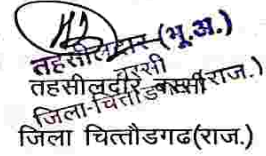 तहसीलदार (भू.अ.)
बस्सी
तहसीलदार बस्सी(राज.)
जिला-चित्तौड़
जिला चित्तौडगढ(राज.)